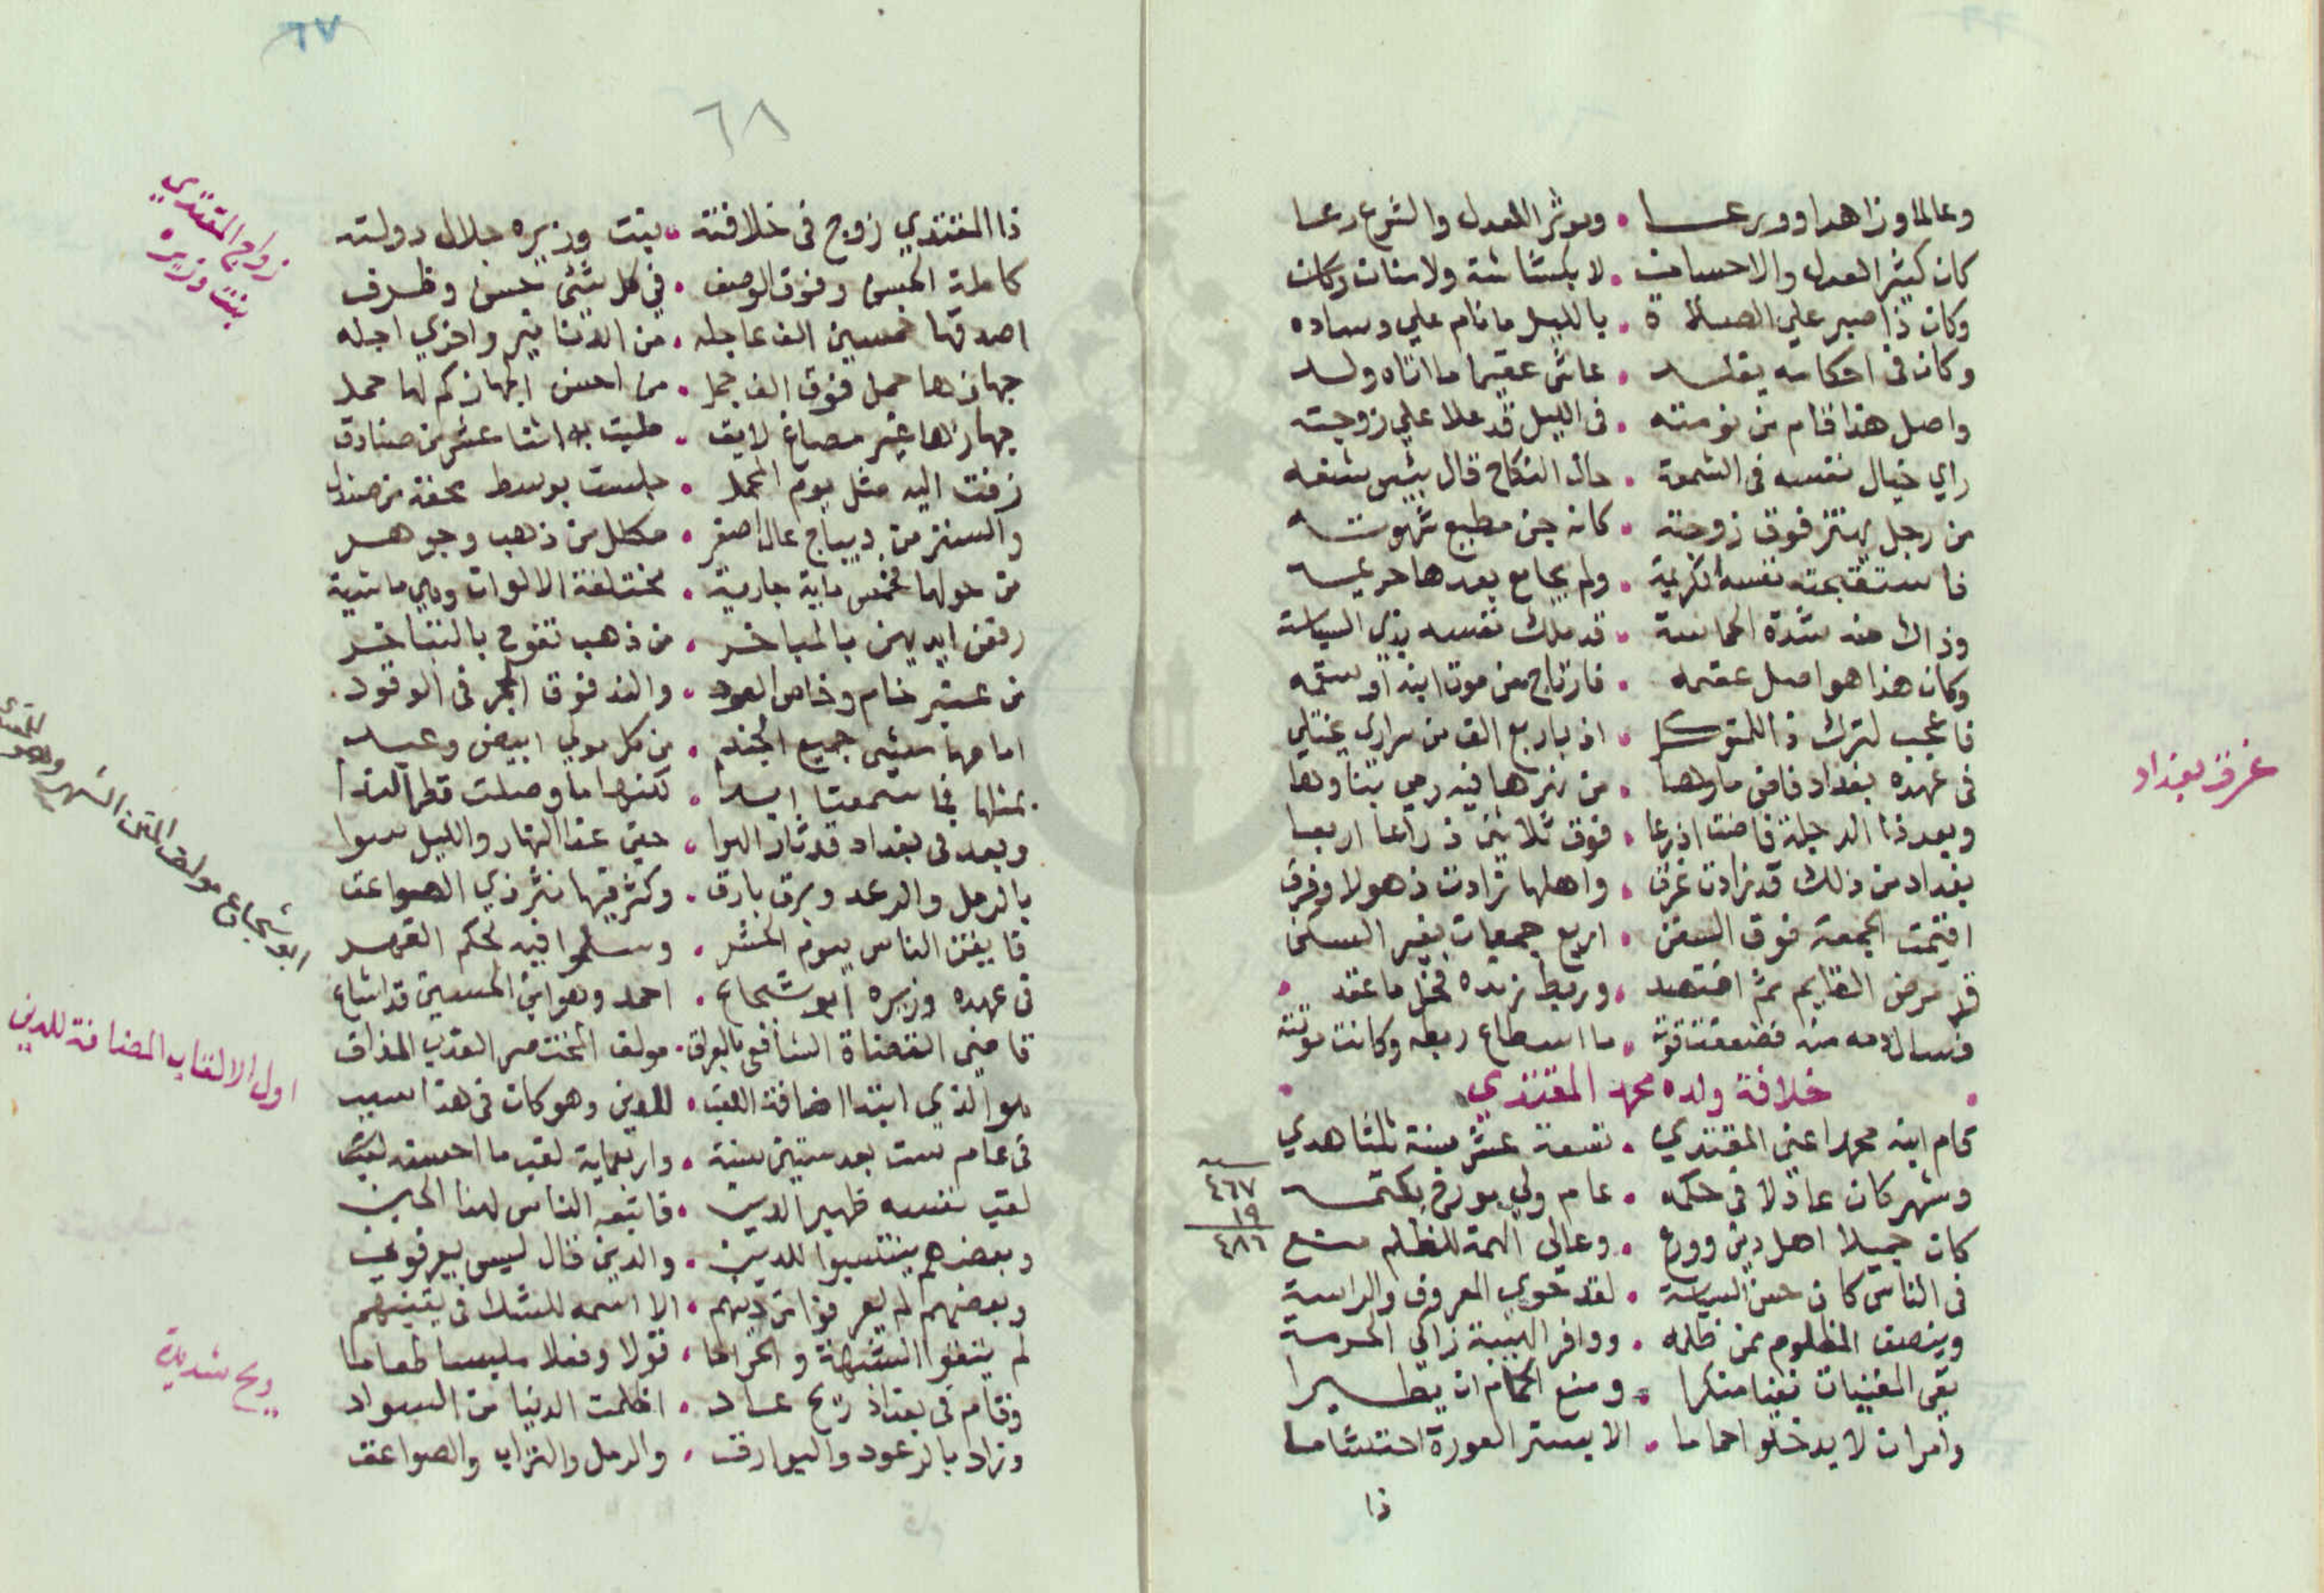 وعالما وزاهدا وورعا • وموثر العدل والشرع رعا
كان كثير العدل والاحسان • لا بكتاشة ولا منان وكان
وكان ذا صبر علي الصلاة • بالليل ما نام علي وساده
وكان في احكامه يقلد • عاش عقيما ما اتاه ولد
واصل هذا قام من نومته • في الليل قد علا علي زوجته
راي خيال نفسه في الشمعة • حال النكاح قال بئس شنعه
من رجل يهتز فوق زوجته • كانه جن مطيع شهوته
فاستقبحته نفسه الكريمة • ولم يجامع بعدها حريمه
وذاك منه شدة الحماسة • قد ملك نفسه بذي السياسة
وكان هذا هو اصل عقمه • فارتاح من موت ابنه او سقمه
فاعجب لترك ذا للمتوكل • اذ باربع الف من سراري يختلي
في عهده بغداد فاض ماوها • من نهرها فيه رمي بناوها
وبعد ذا الدجلة فاضت اذرعا • فوق ثلاثين ذراعا اربعا
بغداد من ذلك قد زادت غرق • واهلها زادت ذهولا وفرق
اقيمت الجمعة فوق السفن • اربع جمعات بغير السكن
قد مرض القايم ثم افتصد • وربط زنده فحل ما عقد
فسال دمه منه فضعفت قوته • ما اسطاع ربطه وكانت موتته
خلافة ولده محمد المقتدي
قام ابنه محمد اعني المقتدي • تسعة عشر سنة للشاهدي
وشهر كان عادلا في حكمه • عام ولي يورخ بكتمه
٤٦٧
١٩
٤٨٦
كان جميلا اهل دين وورع • وعالي الهمة للظلم منع
في الناس كان حسن السياسة • لقد حوي المعروف والراسة
وينصف المظلوم ممن ظلمه • ووافر الهيبة زاكي الحرمة
نفي المغنيات نفيا منكرا • ومنع الحمام ان يطيرا
وامر ان لا يدخلوا حماما • الا بستر العورة احتشاما
ذا
غرق بغداد
٦٧
٦٨
ذا المقتدي زوج في خلافته • بنت وزيره جلال دولته
كاملة الحسن وفوق الوصف • في كل شئ حسن وظرف
اصدقها خمسين الف عاجله • من الدنانير واخري اجله
جهازها حمل فوق الف جمل • من احسن الجهاز كم لها حمل
جهازها غير مصاغ لايق • طيب به اثنا عشر من صنادق
زفت اليه مثل يوم المحمل • جلست بوسط محفة من صندل
والستر من ديباج عال اصفر • مكلل من ذهب وجوهر
من حولها خمس ماية جارية • مختلفة الالوان وهي ماشية
رفعن ايديهن بالمباخر • من ذهب تفوح بالتفاخر
من عنبر خام وخاص العود • والند فوق الجمر في الوقود
امامها مشي جميع الجند • من كل مولي ابيض وعبد
بمثلها فما سمعنا ابدا • لكنها ما وصلت قطر الندا
وبعد في بغداد قد ثار الهوا • حتي غدا النهار والليل سوا
بالرمل والرعد وبرق بارق • وكثر فيها نثر ذي الصواعق
فايقن الناس بيوم الحشر • وسلموا فيه لحكم القهر
في عهده وزيره ابو شجاع • احمد وهو ابن الحسين قد اشاع
قاضي القضاة الشافعي بالعراق • مولف المختصر العذب المذاق
هو الذي ابتدا اضافة اللقب • للدين وهو كان في هذا سبب
في عام ست بعد ستين سنة • واربعماية لقب ما احسنه لقبا
لقب نفسه ظهير الدين • فاتبعه الناس لهذا الحين
وبعضهم ينتسبوا للدين • والدين قال ليس يعرفوني
وبعضهم لم يعرفوا من دينهم • الا اسمه للشك في يقينهم
لم يتقوا الشبهة والحراما • قولا وفعلا ملبسا طعاما
وقام في بغداد ريح عاد • اظلمت الدنيا من السواد
وزاد بالرعود والبوارق • والرمل والتراب والصواعق
زواج المقتدي
بنت وزيره
ابو شجاع مولف المتن الشهير وهو
اول الالقاب المضافة للدين
ريح شديدة